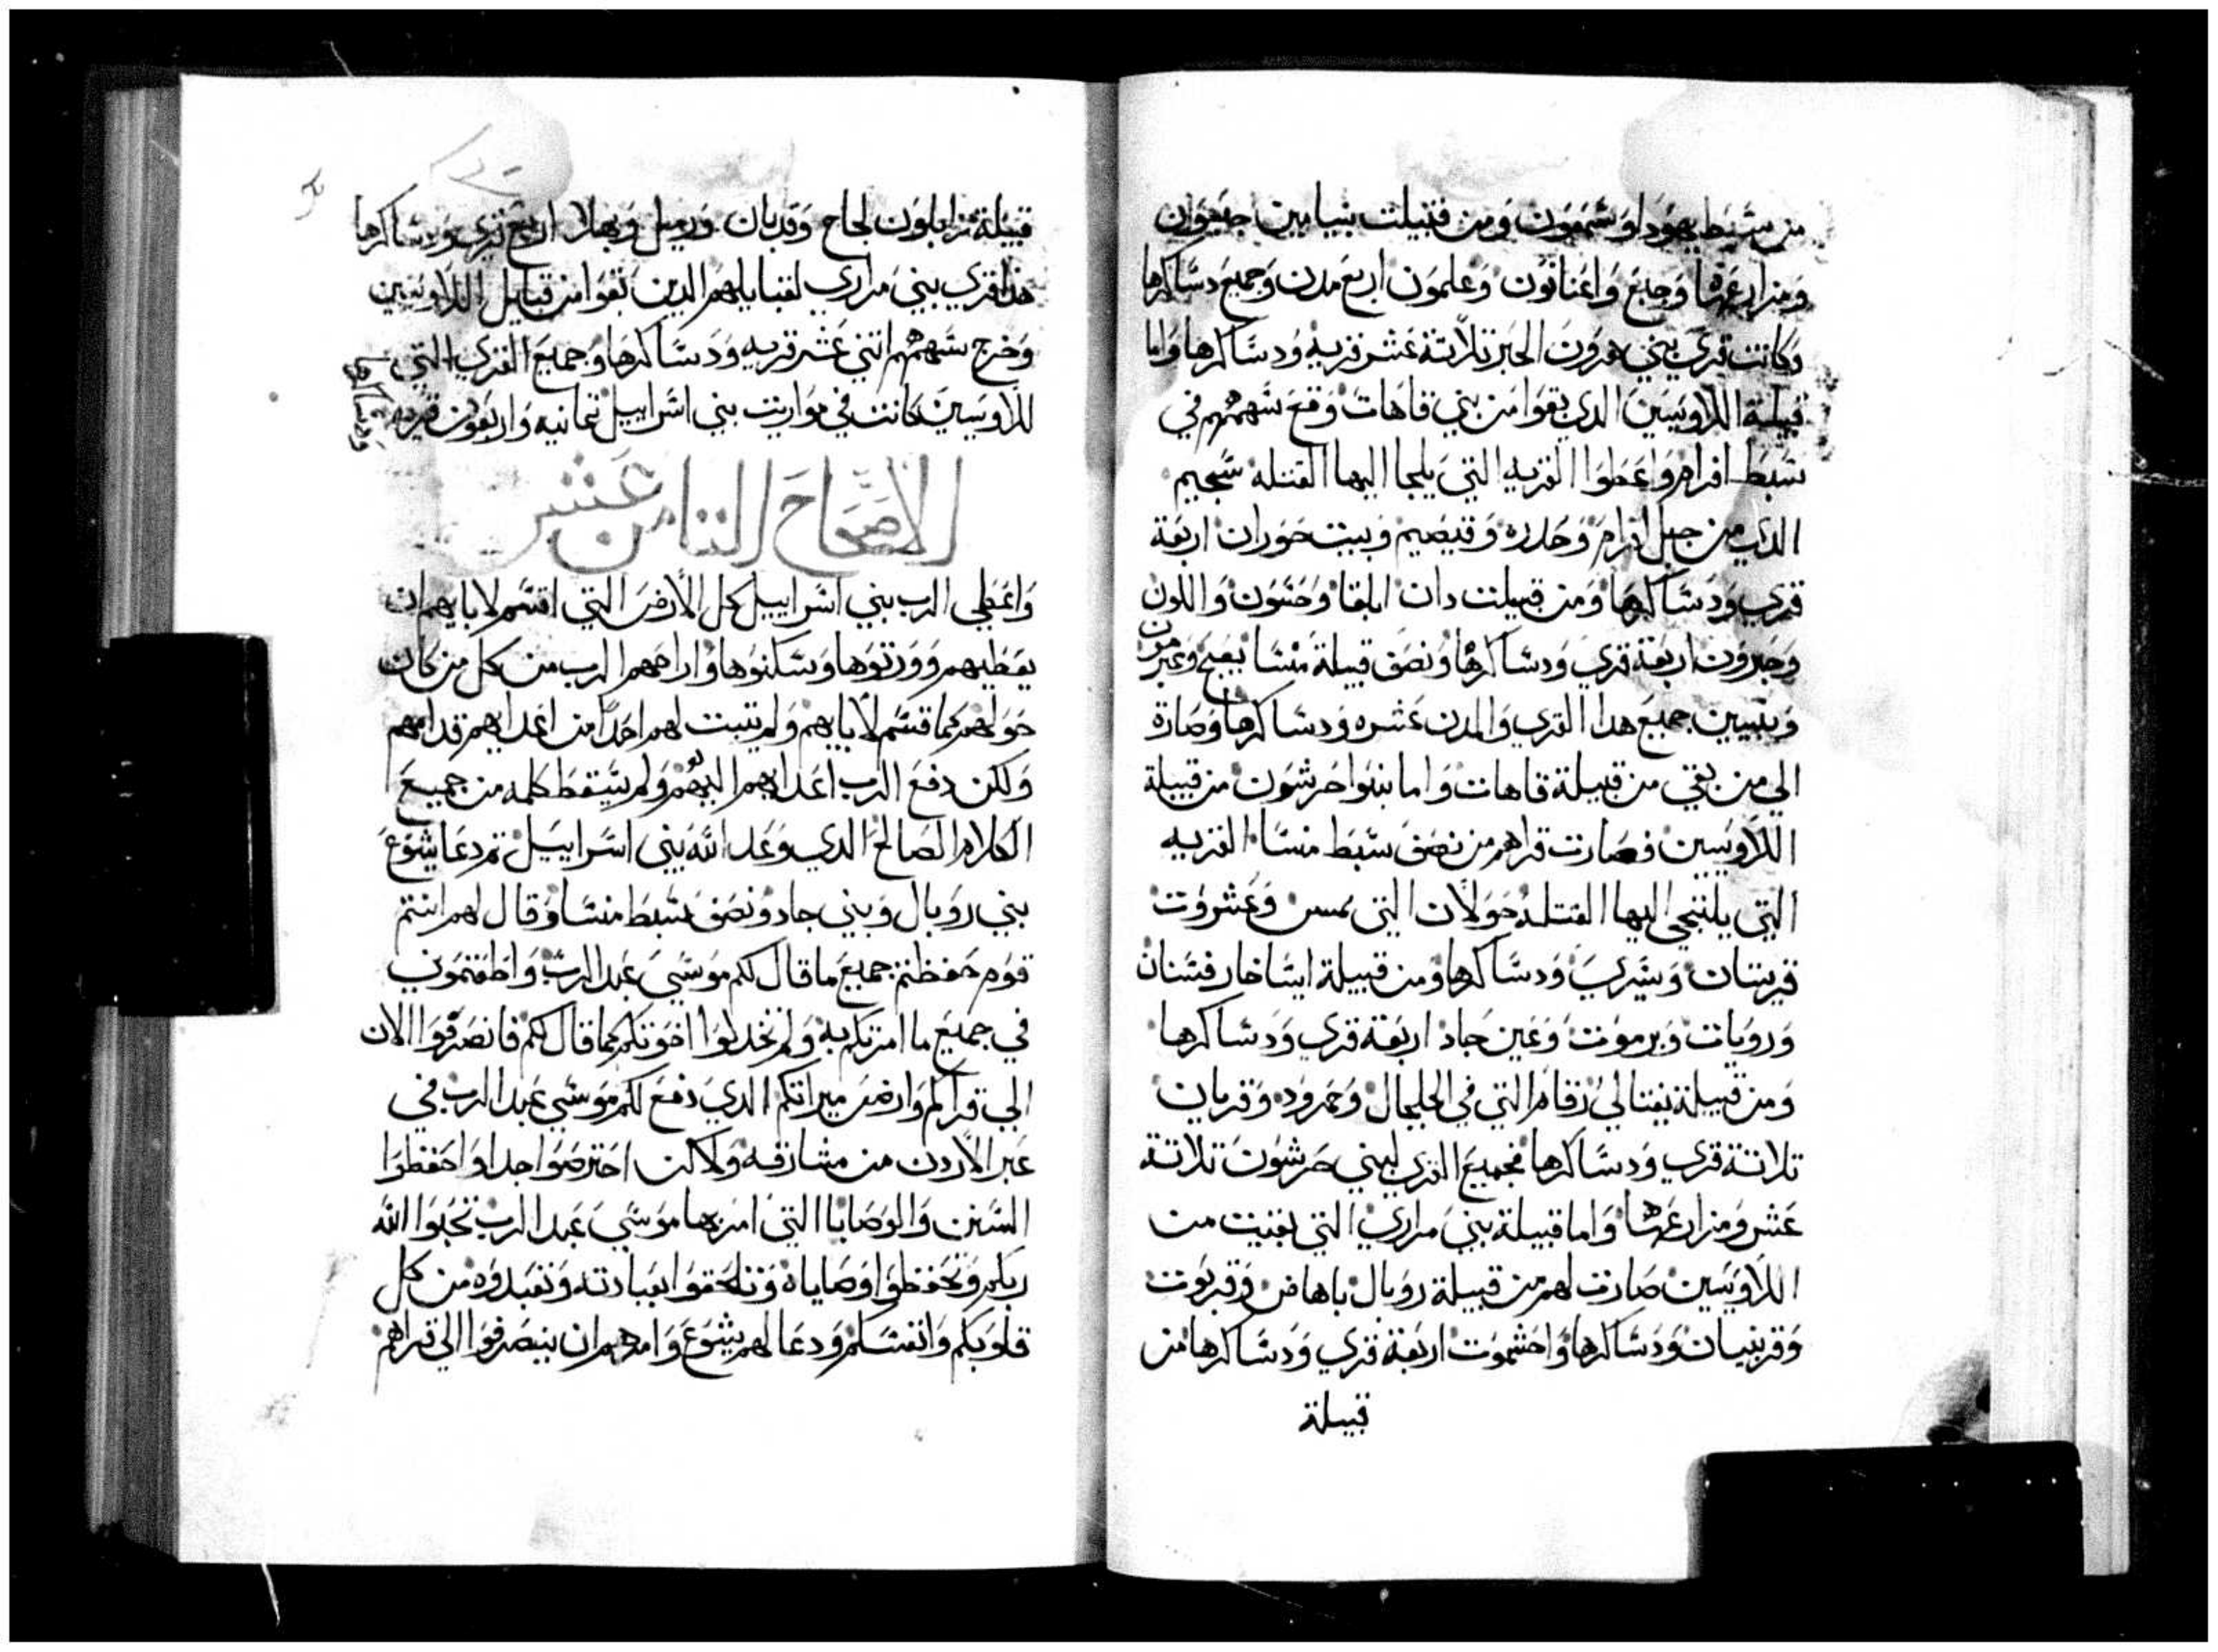 من سبط يهودا وشمعون ومن قبيلت بنيامين جبعون
ومزارعها وجبع واعناتون وعلمون اربع مدن وجميع دساكرها
وكانت قري بني هرون الحبر تلاتة عشر قريه ودساكرها واما
قبيلة اللاويين الدي بقوا من بني قاهات وقع سهمهم في
سبط افرام واعطوا القريه التي يلجا اليها القتله سجيم
الدي من جبل افرام وحدره وقبصيم وبيت حوران اربعة
قري ودساكرها ومن قبيلت دان ايلقا وحتبون واللون
وجبرون اربعة قري ودساكرها ونصف قبيلة منسا
وبيتين جميع هدا القري والمدن عشره ودساكرها وصارة
الي من بقي من قبيلة قاهات واما بنوا حرشون من قبيلة
اللاويين فصارت قراهم من نصف سبط منسا القريه
التي يلتجي اليها القتله حولان التي وعشروت
قريتان ودساكرها ومن قبيلة ايساخار فسنان
وروبات ويرموت وعين جاد اربعة قري ودساكرها
ومن قبيلة نفتالي رقام التي في الجلجال وحمرود وقريان
تلاتة قري ودساكرها فجميع القري لبني حرشون تلاتة
عشر ومزارعها واما قبيلة بني مراري التي بقيت من
اللاويين صارت لهم من قبيلة روبال باهاض وقريوت
وقرينيان ودساكرها واحشموت اربعة قري ودساكرها من
قبيلة
قبيلة زابلون لجاح وقديان ورميل وبهلا اربع قري ودساكرها
هدا قري بني مراري لقبايلهم الدين بقوا من قبايل اللاويين
وخرج سهمهم اتني عشر قريه ودساكرها وجميع القري التي
للاويين كانت في مواريت بني اسراييل تمانيه واربعون قريه
ودساكرها
الاصحاح التامن عشر
واعطي الرب بني اسراييل كل الارض التي اقسم لابايهم ان
يعطيهم وورتوها وسكنوها واراحهم الرب من كل من كان
حولهم كما قسم لابايهم ولم يتبت لهم احدا من اعدايهم قدامهم
ولكن دفع الرب اعدايهم اليهم ولم يسقط كلمه من جميع
الكلام الصالح الدي وعد الله بني اسراييل تم دعا يشوع
بني روبال وبني جاد ونصف سبط منسا وقال لهم انتم
قوم حفظتم جميع ما قال لكم موسي عبد الرب واطعتموني
في جميع ما امرتكم به ولم تخدلوا اخوتكم كما قال لكم فانصرفوا الان
الي قراكم وارض ميراتكم الدي دفع لكم موسي عبد الرب في
عبر الاردن من مشارقه ولاكن احترصوا جدا واحفظوا
السنن والوصايا التي امر بها موسي عبد الرب تحبوا الله
ربكم وتحفظوا وصاياه وتلحقوا بعبادته وتعبدوه من كل
قلوبكم وانفسكم ودعا لهم يشوع وامرهم ان ينصرفوا الي قراهم